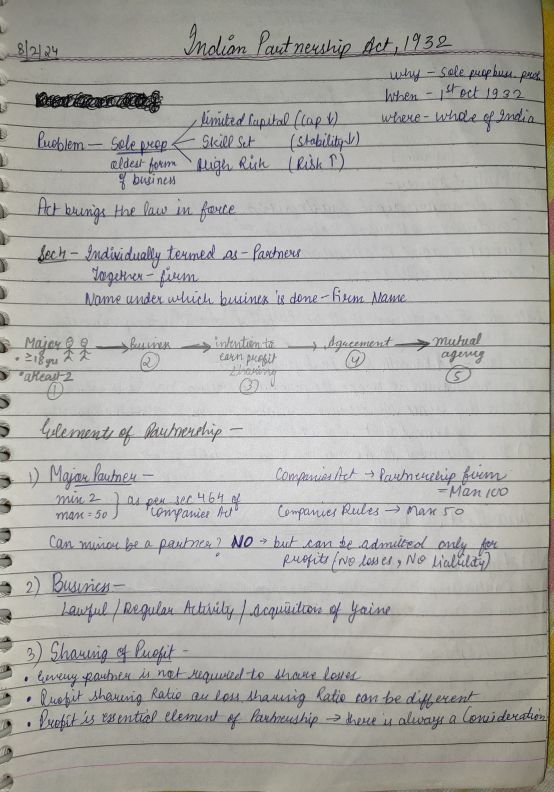 8/2/24
Indian Partnership Act, 1932
why - sole prop busi. prob
When - 1st Oct 1932
where - whole of India
limited Capital (cap ↓)
Problem - Sole prop
Skill Set (stability ↓)
High Risk (Risk ↑)
oldest form
of business
Act brings the law in force
Sec 4 - Individually termed as - Partners
Together - firm
Name under which business is done - Firm Name
Major → Business → intention to → Agreement → mutual
• ≥ 18 yrs earn profit agency
sharing
• atleast 2
① ② ③ ④ ⑤
Elements of Partnership -
1) Major Partner -
min 2 } as per sec 464 of
max = 50 Companies Act
Companies Act → Partnership firm
= Max 100
Companies Rules → Max 50
Can minor be a partner? NO → but can be admitted only for
profits (No losses, No liability)
2) Business -
Lawful / Regular Activity / Acquisition of
3) Sharing of Profit -
• Every partner is not required to share losses
• Profit sharing Ratio an loss sharing Ratio can be different
• Profit is essential element of Partnership → there is always a Consideration